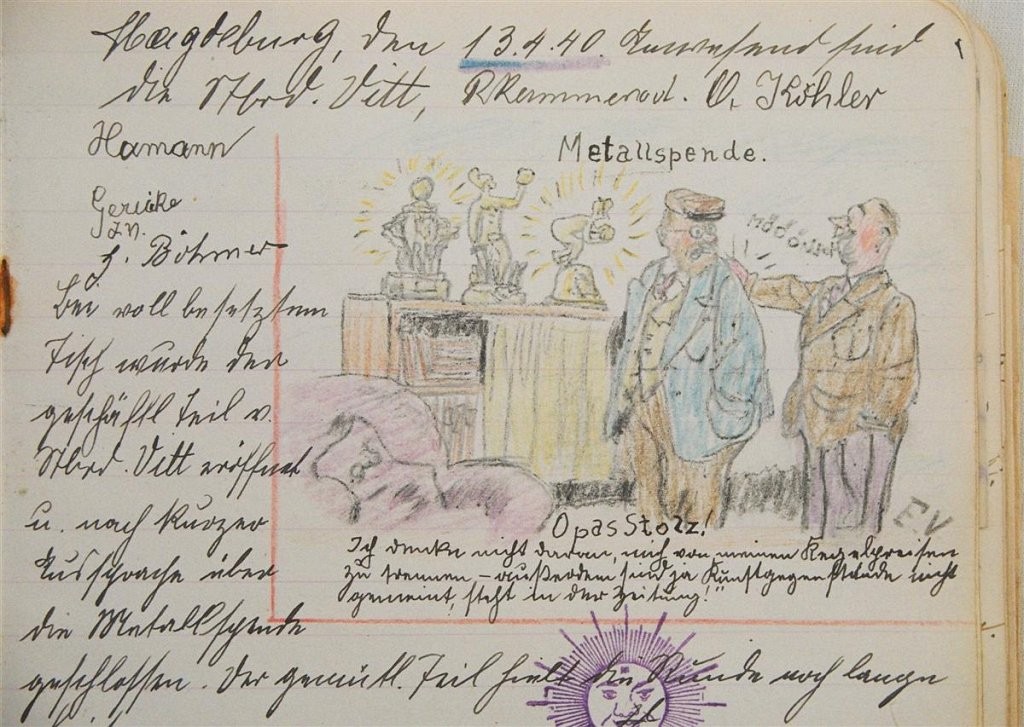 Magdeburg, den 13.4.40. Anwesend sind
die Stbrd. Vitt, RKammerad. O. Köhler
Hamann
Gericke
J. Böhmer
Bei voll besetztem
Tisch wurde der
geschäftl Teil v.
Stbrd. Vitt eröffnet
u. nach kurzer
Aussprache über
die Metallspende
geschlossen. Der gemütl. Teil hielt die Runde noch lange
Metallspende.
Opas Stolz!
Ich denke nicht daran, mich von meinen Kegelpreisen
zu trennen, – außerdem sind ja Kunstgegenstände nicht
gemeint, steht in der Zeitung!"
E.V